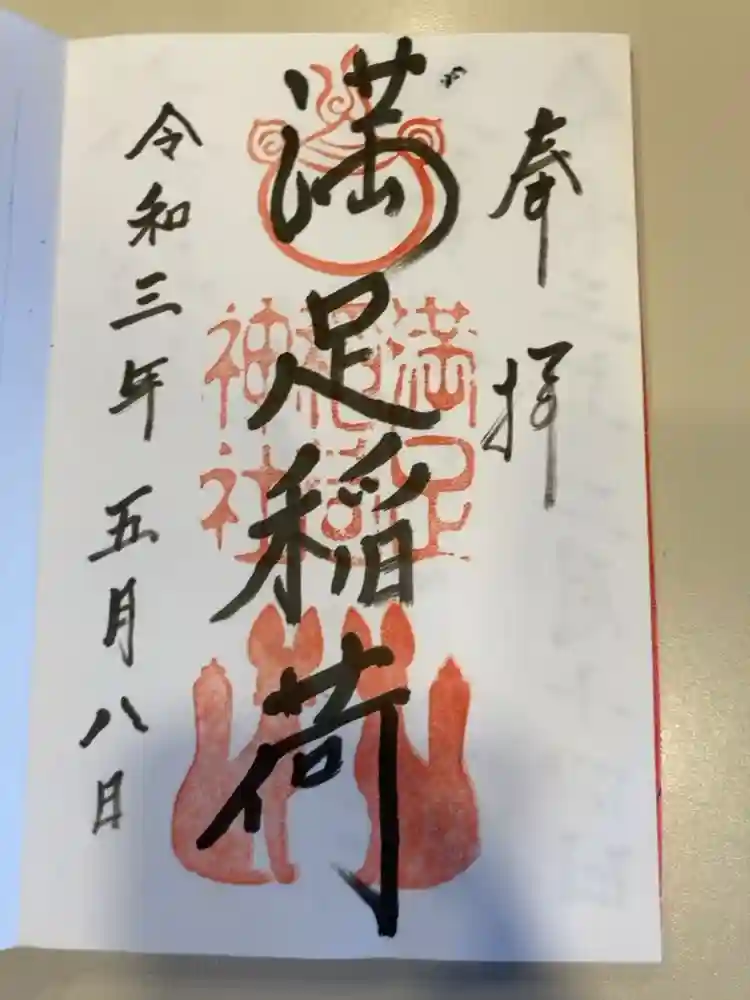 奉拝
満足稲荷
満足
稲荷
神社
令和三年五月八日